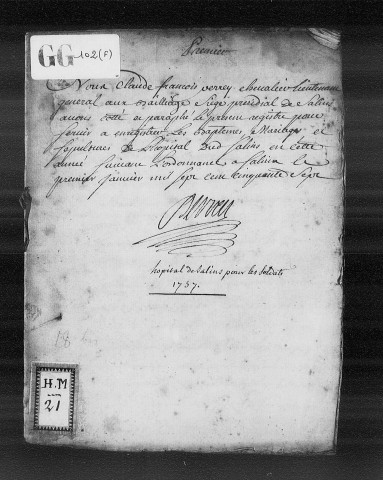 GG 102 (F)
Premier
Nous Claude francois verrey chevalier Lieutenant
general aux Bailliage Siege presidial de Salins
avons cotté et paraphé le present registre pour
servir a enregistrer Les Baptemes Mariages et
sepultures de L'hopital dud Salins en cette
année suivant L'ordonnance a Salins le
premier janvier mil sept cent cinquante sept
hopital de Salins pour les soldats
1757.
H.M
21